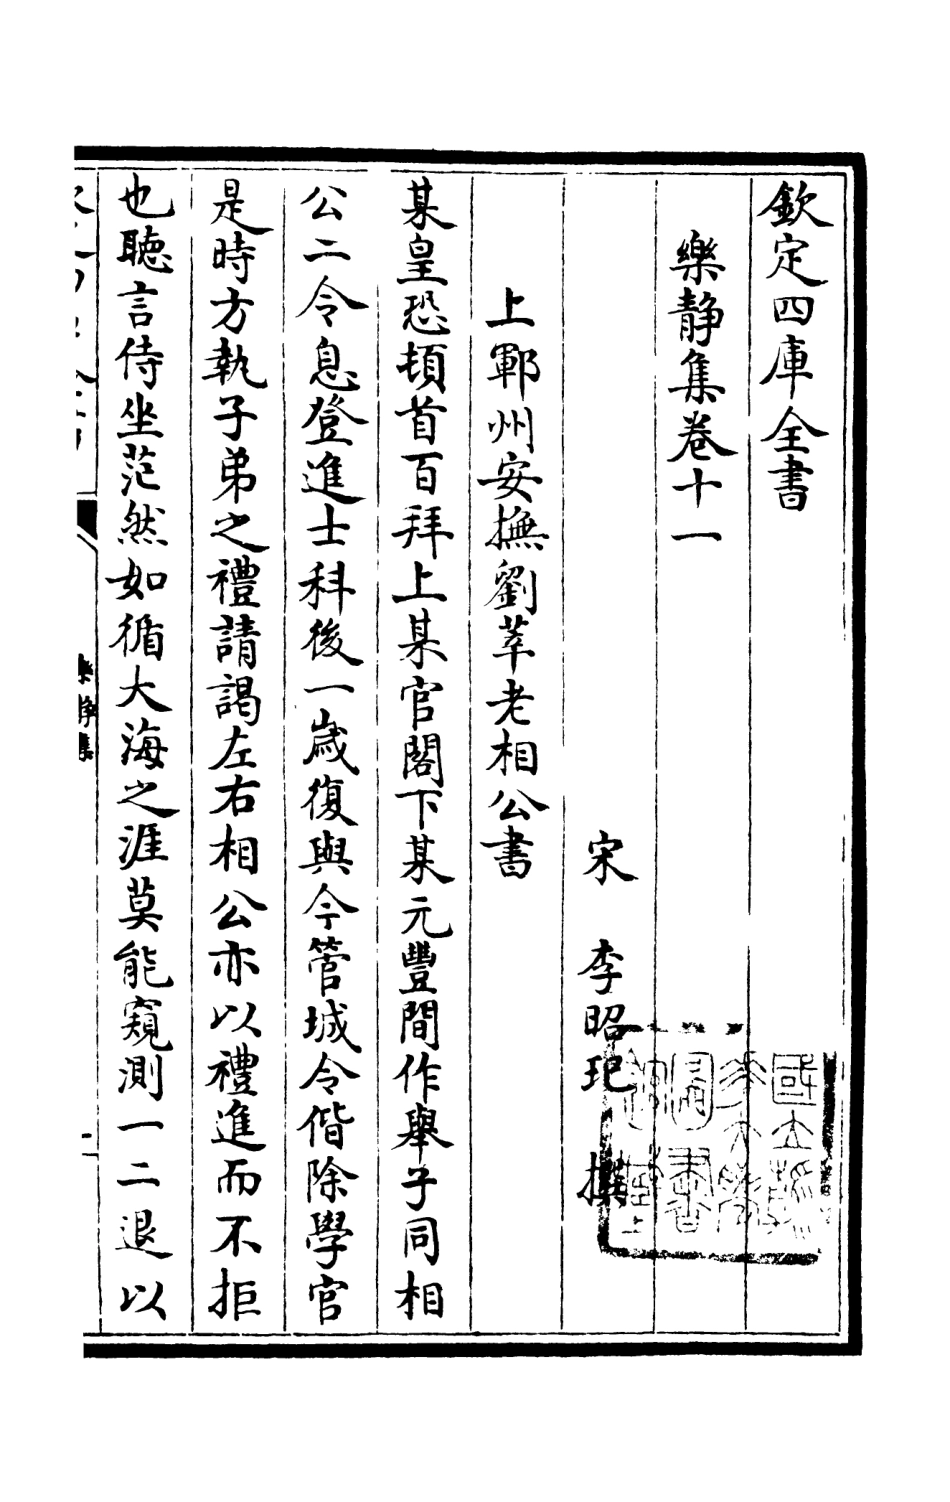 欽定四庫全書
樂静集卷十一
宋 李昭玘 撰
上鄆州安撫劉莘老相公書
某皇恐頓首百拜上某官閣下某元豐間作舉子同相
公二令息登進士科後一歲復與今管城令偕除學官
是時方執子弟之禮請謁左右相公亦以禮進而不拒
也聽言侍坐茫然如循大海之涯莫能窺測一二退以
樂静集